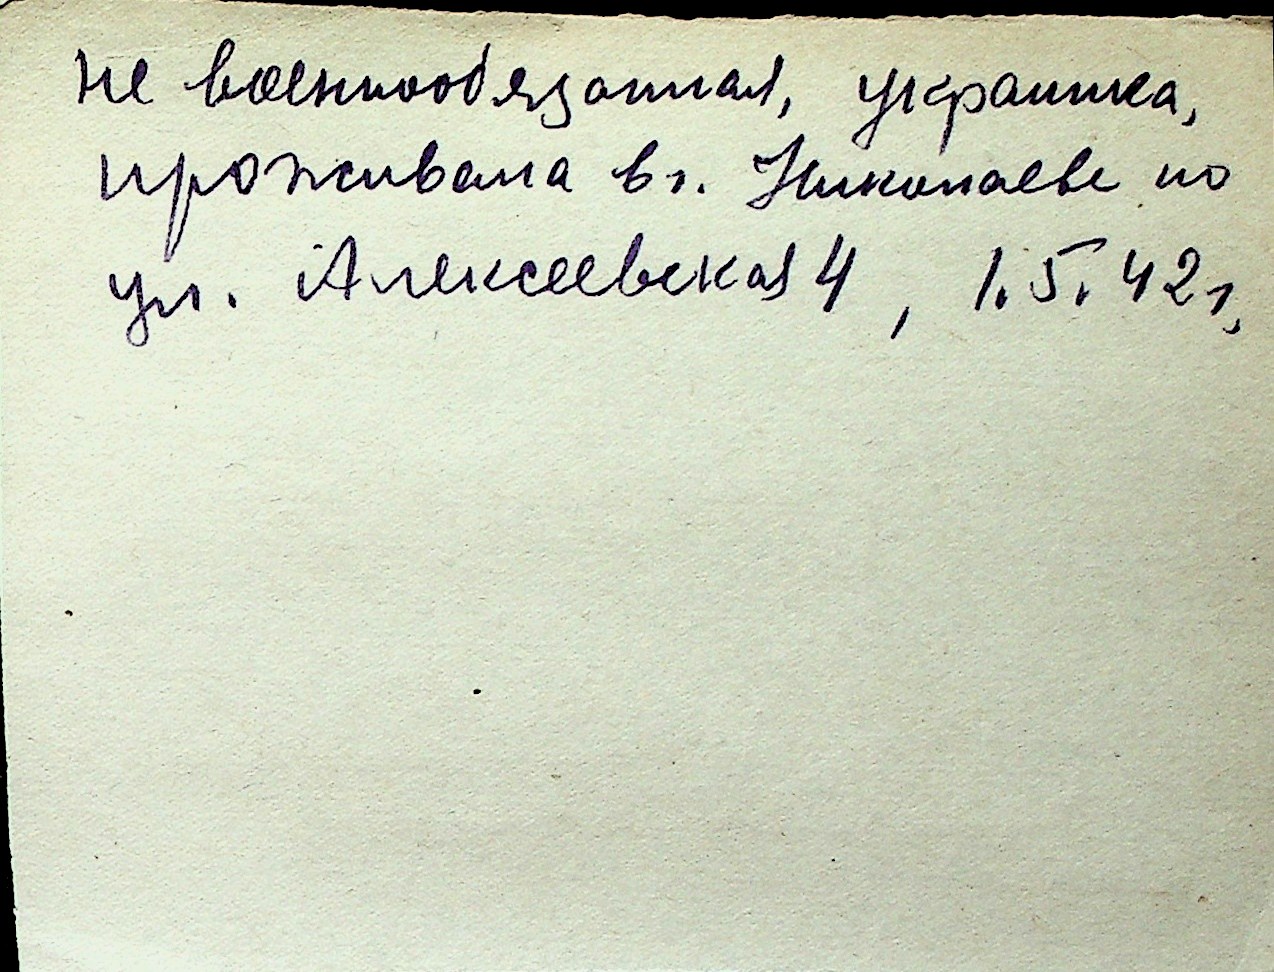 не военнообязанная, украинка,
проживала в г. Николаеве по
ул. Алексеевская 4, 1.5.42г,